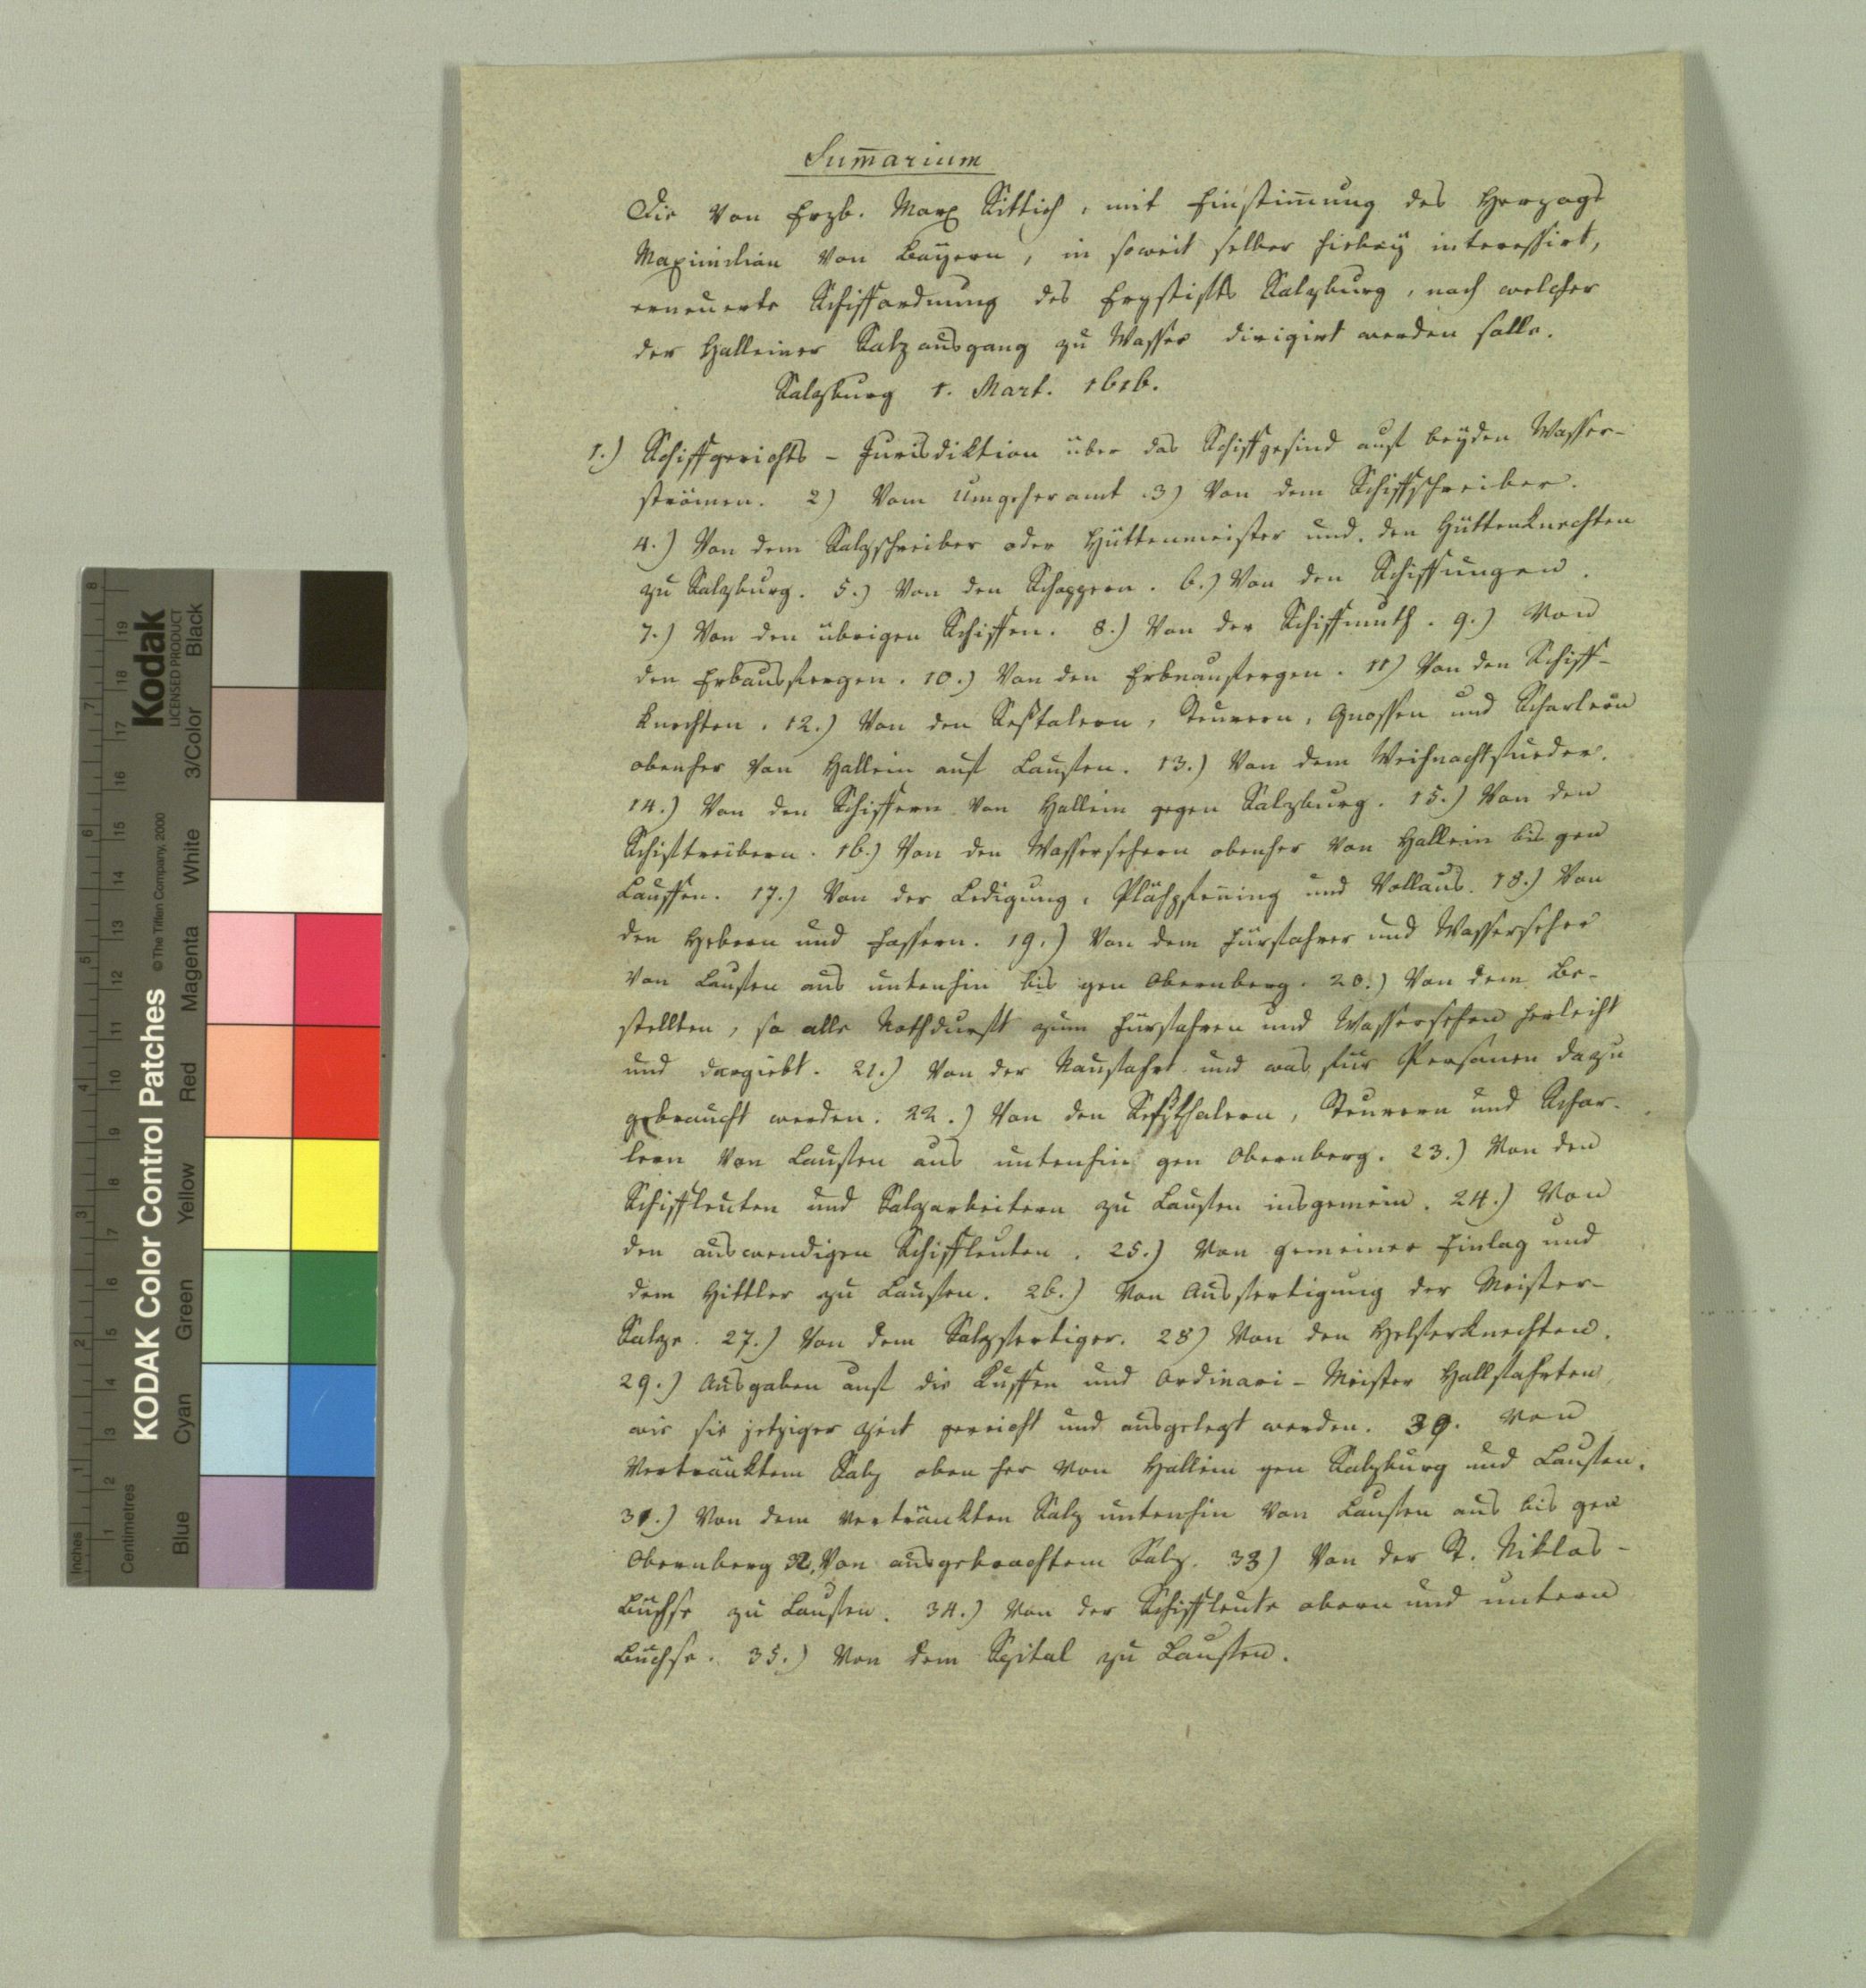 Sum̄arium
Die von Erzb. Marx Sittich, mit Einstim̄ung des Herzogs
Maximilian von Bayern, in soweit selber hiebey interessirt,
erneuerte Schiffordnung des Erzstifts Salzburg, nach welcher
der Halleiner Salzausgang zu Wasser dirigirt werden solle.
Salzburg 1. Mart. 1616.
1.) Schiffgerichts-Jurisdiktion über das Schiffgesind auf beyden Wasser-
strömen. 2) Vom Umgeheramt. 3) Von dem Schiffschreiber.
4.) Von dem Salzschreiber oder Hüttenmeister und den Hüttenknechten
zu Salzburg. 5.) Von den Schoppern. 6.) Von den Schiffungen.
7.) Von den übrigen Schiffen. 8.) Von der Schiffmuth. 9.) Von
den Erbausfergen. 10.) Von den Erbnaufergen. 11) Von den Schiff-
knechten. 12.) Von den Seßtalern, Steurern, Gnossen und Scharlern
obenher von Hallein auf Laufen. 13.) Von dem Weihnachtfueder.
14.) Von den Schiffern von Hallein gegen Salzburg. 15.) Von den
Schiftreibern. 16.) Von den Wassersehern obenher von Hallein bis gen
Lauffen. 17.) Von der Ledigung, Plähpfen̄ing und Vollaus. 18.) Von
den Hebern und Fassern. 19.) Von dem Fürfahrer und Wasserseher
von Laufen aus untenhin bis gen Obernberg. 20.) Von dem Be-
stellten, so alle Nothdurft zum Fürfahren und Wassersehen herleiht
und dargiebt. 21.) Von der Naufahrt und was für Personen dazu
gebraucht werden. 22.) Von den Seßthalern, Steurern und Schar-
lern von Laufen aus untenhin gen Obernberg. 23.) Von den
Schiffleuten und Salzarbeitern zu Laufen insgemein. 24.) Von
den auswendigen Schiffleuten. 25.) Von gemeiner Einlag und
dem Hittler zu Laufen. 26.) Von Ausfertigung der Meister-
Salze. 27.) Von dem Salzfertiger. 28) Von den Helferknechten.
29.) Ausgaben auf die Kuffen und Ordinari-Meister Hallfahrten,
wie sie jetziger Zeit gereicht und ausgelegt werden. 30. Von
Vertränktem Salz oben her von Hallein gen Salzburg und Laufen.
31.) Von dem vertränkten Salz untenhin von Laufen aus bis gen
Obernberg 32. Von ausgebrachtem Salz. 33) Von der St. Niklas-
Buchse zu Laufen. 34.) Von der Schiffleute obern und untern
Buchse. 35.) Von dem Spital zu Laufen.
Inches
Centimetres
KODAK Color Control Patches
© The Tiffen Company, 2000
Kodak
LICENSED PRODUCT
Blue
Cyan
Green
Yellow
Red
Magenta
White
3/Color
Black